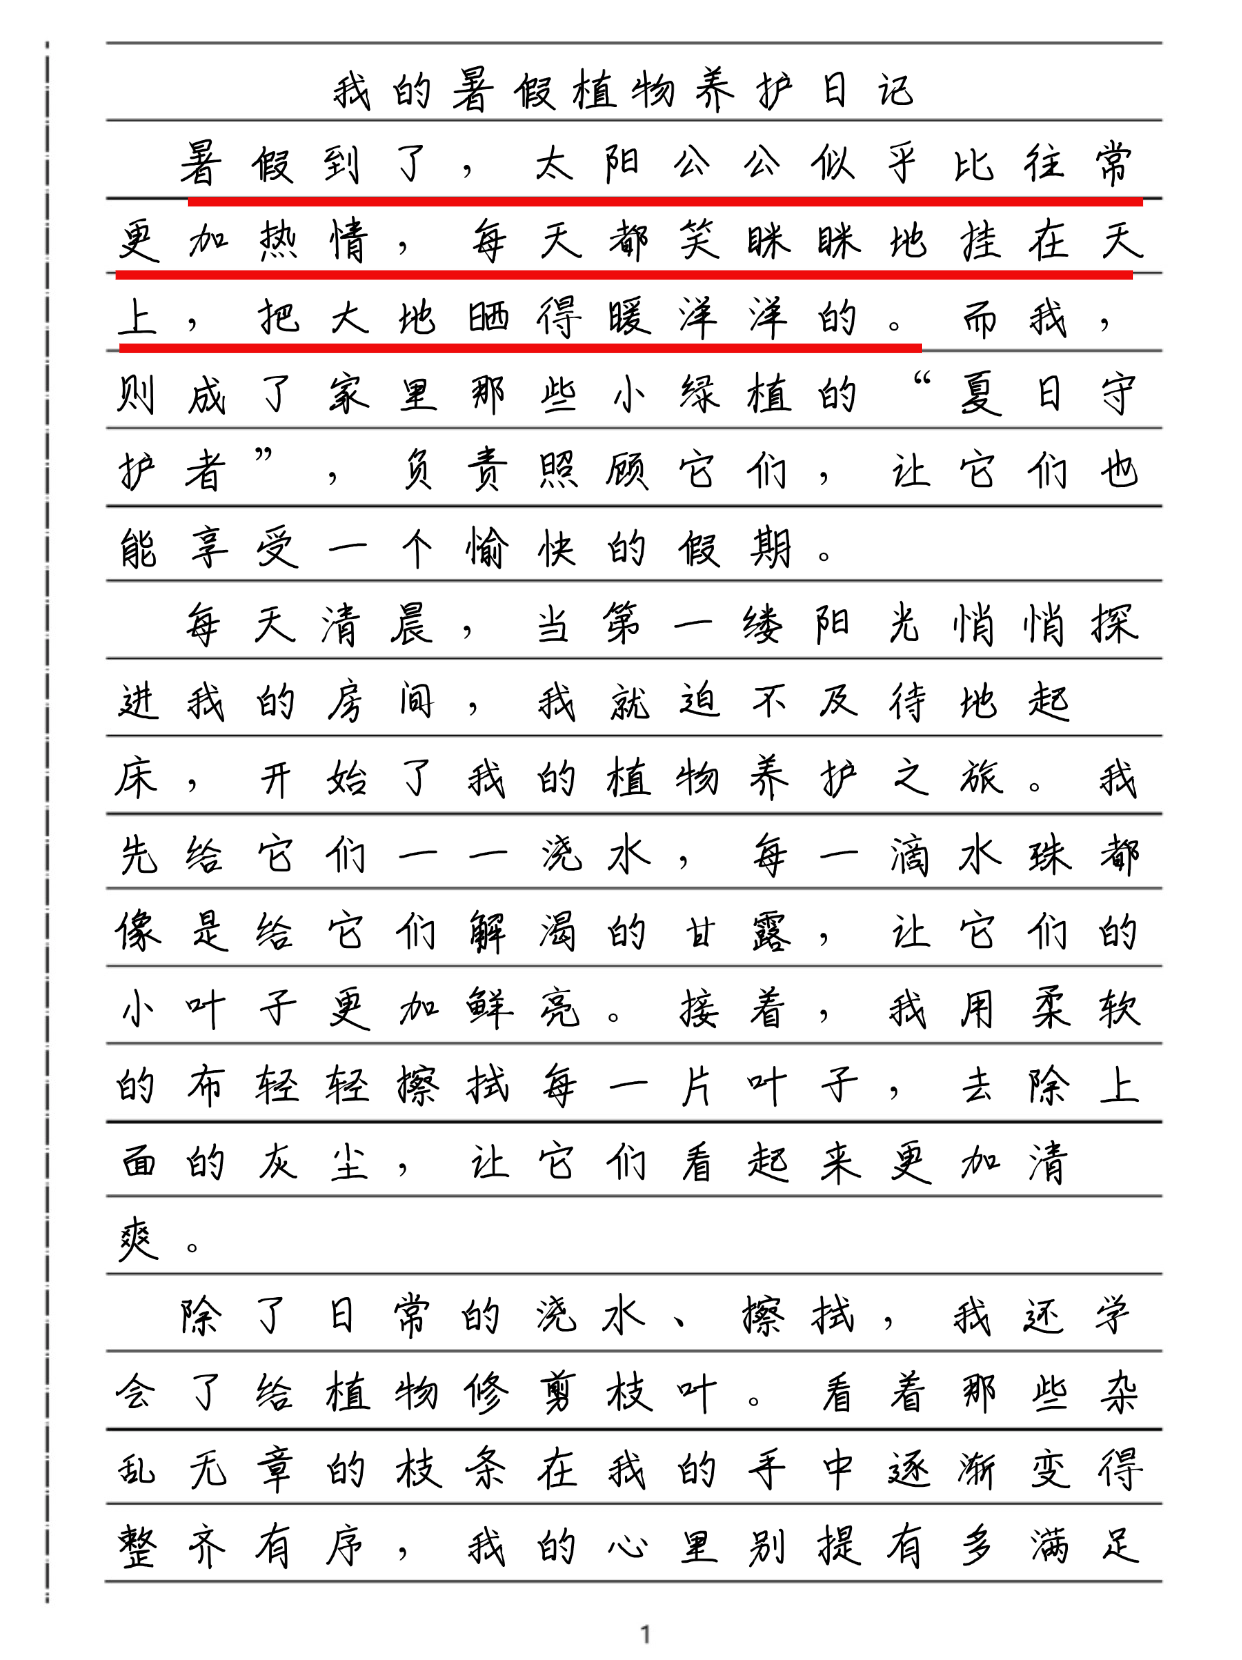 我的暑假植物养护日记
暑假到了，太阳公公似乎比往常
更加热情，每天都笑眯眯地挂在天
上，把大地晒得暖洋洋的。而我，
则成了家里那些小绿植的“夏日守
护者”，负责照顾它们，让它们也
能享受一个愉快的假期。
每天清晨，当第一缕阳光悄悄探
进我的房间，我就迫不及待地起
床，开始了我的植物养护之旅。我
先给它们一一浇水，每一滴水珠都
像是给它们解渴的甘露，让它们的
小叶子更加鲜亮。接着，我用柔软
的布轻轻擦拭每一片叶子，去除上
面的灰尘，让它们看起来更加清
爽。
除了日常的浇水、擦拭，我还学
会了给植物修剪枝叶。看着那些杂
乱无章的枝条在我的手中逐渐变得
整齐有序，我的心里别提有多满足
1